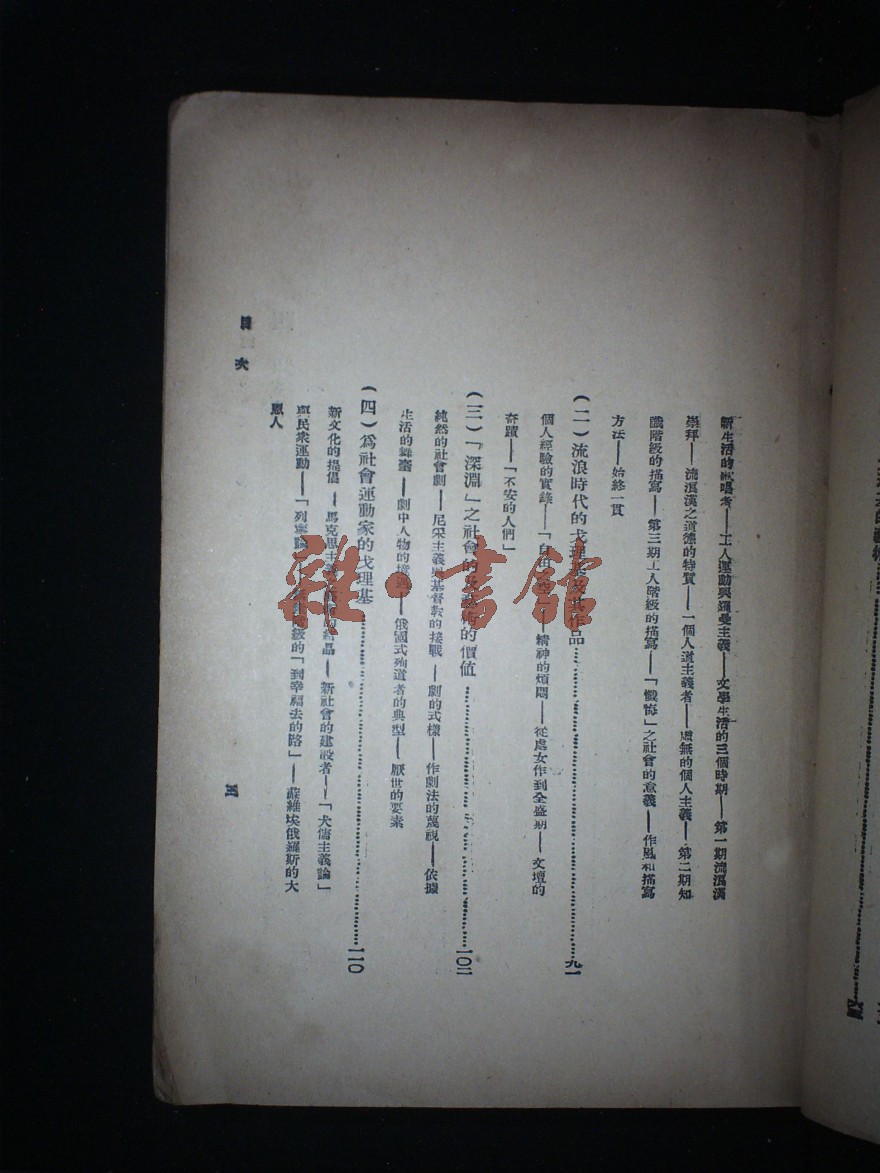 新生活的歌唱者——工人運動與羅曼主義——文學生活的三個時期——第一期流氓漢
崇拜——流氓漢之道德的特質——一個人道主義者——虛無的個人主義——第二期知
識階級的描寫——第三期工人階級的描寫——「懺悔」之社會的意義——作風和描寫
方法——始終一貫
(二)流浪時代的戈理基及其作品……九一
個人經驗的實錄——「自由 精神的煩悶——從處女作到全盛期——文壇的
奇蹟——「不安的人們」
(三)「深淵」之社會的及藝術的價值……一〇二
純然的社會劇——尼采主義與基督教的接戰——劇的式樣——作劇法的蔑視——依據
生活的舞臺——劇中人物的境遇——俄國式殉道者的典型——厭世的要素
(四)爲社會運動家的戈理基……一一〇
新文化的提倡——馬克思主義 的結晶——新社會的建設者——「犬儒主義論」
與民衆運動——「列寧論」 級的「到幸福去的路」——蘇維埃俄羅斯的大
恩人
目次
五
雜·書館